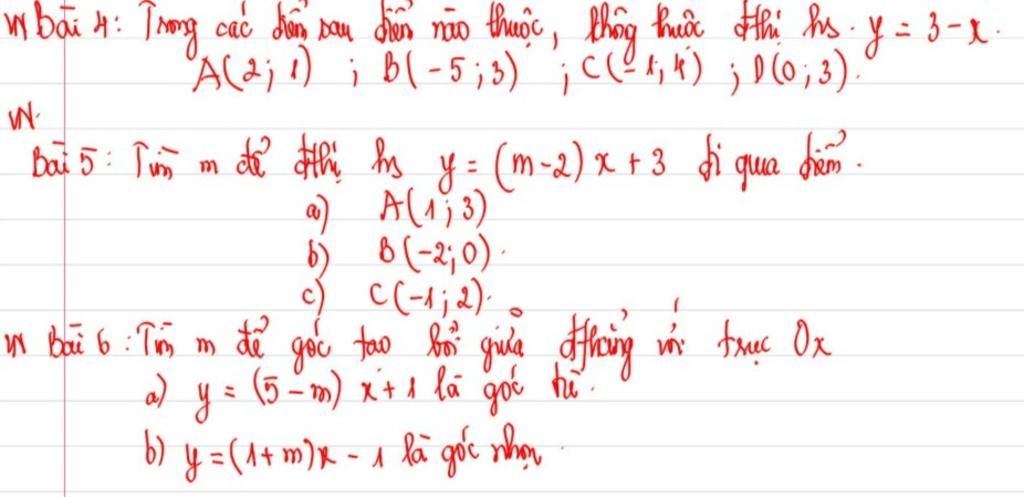 Bài 4: Trong các điểm sau điểm nào thuộc, không thuộc đthị hs. y = 3 - x.
A(2; 1) ; B(-5; 3) ; C(-1; 4) ; D(0; 3).
Bài 5: Tìm m để đthị hs y = (m-2) x + 3 đi qua điểm.
a) A(1; 3)
b) B(-2; 0).
c) C(-1; 2).
Bài 6: Tìm m để góc tạo bởi giữa đthẳng với trục Ox
a) y = (5 - m) x + 1 là góc tù.
b) y = (1+m)x - 1 là góc nhọn